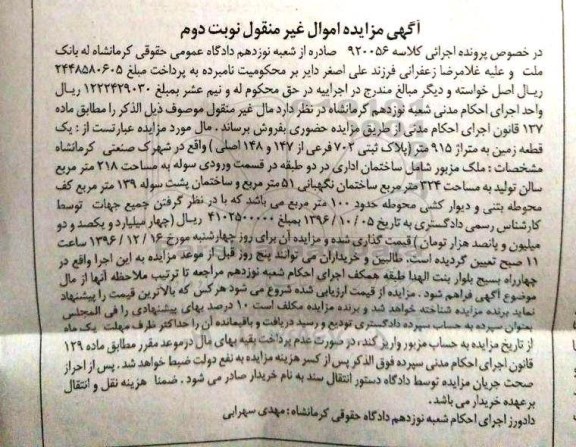 آگهی مزایده اموال غیر منقول نوبت دوم
در خصوص پرونده اجرائی کلاسه ۹۲۰۰۵۶ صادره از شعبه نوزدهم دادگاه عمومی حقوقی کرمانشاه له بانک
ملت و علیه غلامرضا زعفرانی فرزند علی اصغر دایر بر محکومیت نامبرده به پرداخت مبلغ ۲۴۴۸۵۸۰۶۰۵
ریال اصل خواسته و دیگر مبالغ مندرج در اجراییه در حق محکوم له و نیم عشر بمبلغ ۱۲۲۲۴۲۹۰۳۰ ریال
واحد اجرای احکام مدنی شعبه نوزدهم کرمانشاه در نظر دارد مال غیر منقول موصوف ذیل الذکر را مطابق ماده
۱۳۷ قانون اجرای احکام مدنی از طریق مزایده حضوری بفروش برساند . مال مورد مزایده عبارتست از : یک
قطعه زمین به متراژ ۹۱۵ متر (پلاک ثبتی ۷۰۲ فرعی از ۱۴۷ و ۱۴۸ اصلی ) واقع در شهرک صنعتی کرمانشاه
مشخصات : ملک مزبور شامل ساختمان اداری در دو طبقه در قسمت ورودی سوله به مساحت ۲۱۸ متر مربع
سالن تولید به مساحت ۳۲۴ متر مربع ساختمان نگهبانی ۵۱ متر مربع و ساختمان پشت سوله ۱۳۹ متر مربع کف
محوطه بتنی و دیوار کشی محوطه حدود ۱۰۰ متر مربع می باشد که با در نظر گرفتن جمیع جهات توسط
کارشناس رسمی دادگستری به تاریخ ۰۵ / ۱۰ / ۱۳۹۶ بمبلغ ۴۱۰۲۵۰۰۰۰۰ ریال (چهار میلیارد و یکصد و دو
میلیون و پانصد هزار تومان ) قیمت گذاری شده و مزایده آن برای روز چهارشنبه مورخ ۱۶ / ۱۲ / ۱۳۹۶ ساعت
۱۱ صبح تعیین گردیده است. طالبین و خریداران می توانند پنج روز قبل از موعد مزایده به این اجرا واقع در
چهارراه بسیج بلوار بنت الهدا طبقه همکف اجرای احکام شعبه نوزدهم مراجعه تا ترتیب ملاحظه آنها از مال
موضوع آگهی فراهم شود . مزایده از قیمت ارزیابی شده شروع می شود هر کس که بالاترین قیمت را پیشنهاد
نماید برنده مزایده شناخته خواهد شد و برنده مزایده مکلف است ۱۰ درصد بهای پیشنهادی را فی المجلس
بعنوان سپرده به حساب سپرده دادگستری تودیع و رسید دریافت و باقیمانده آن را حداکثر ظرف مهلت یک ماه
از تاریخ مزایده به حساب مزبور واریز کند، در صورت عدم پرداخت بقیه بهای مال در موعد مقرر مطابق ماده ۱۲۹
قانون اجرای احکام مدنی سپرده فوق الذکر پس از کسر هزینه مزایده به نفع دولت ضبط خواهد شد . پس از احراز
صحت جریان مزایده توسط دادگاه دستور انتقال سند به نام خریدار صادر می شود . ضمنا هزینه نقل و انتقال
بر عهده خریدار می باشد.
دادورز اجرای احکام شعبه نوزدهم دادگاه حقوقی کرمانشاه : مهدی سهرابی